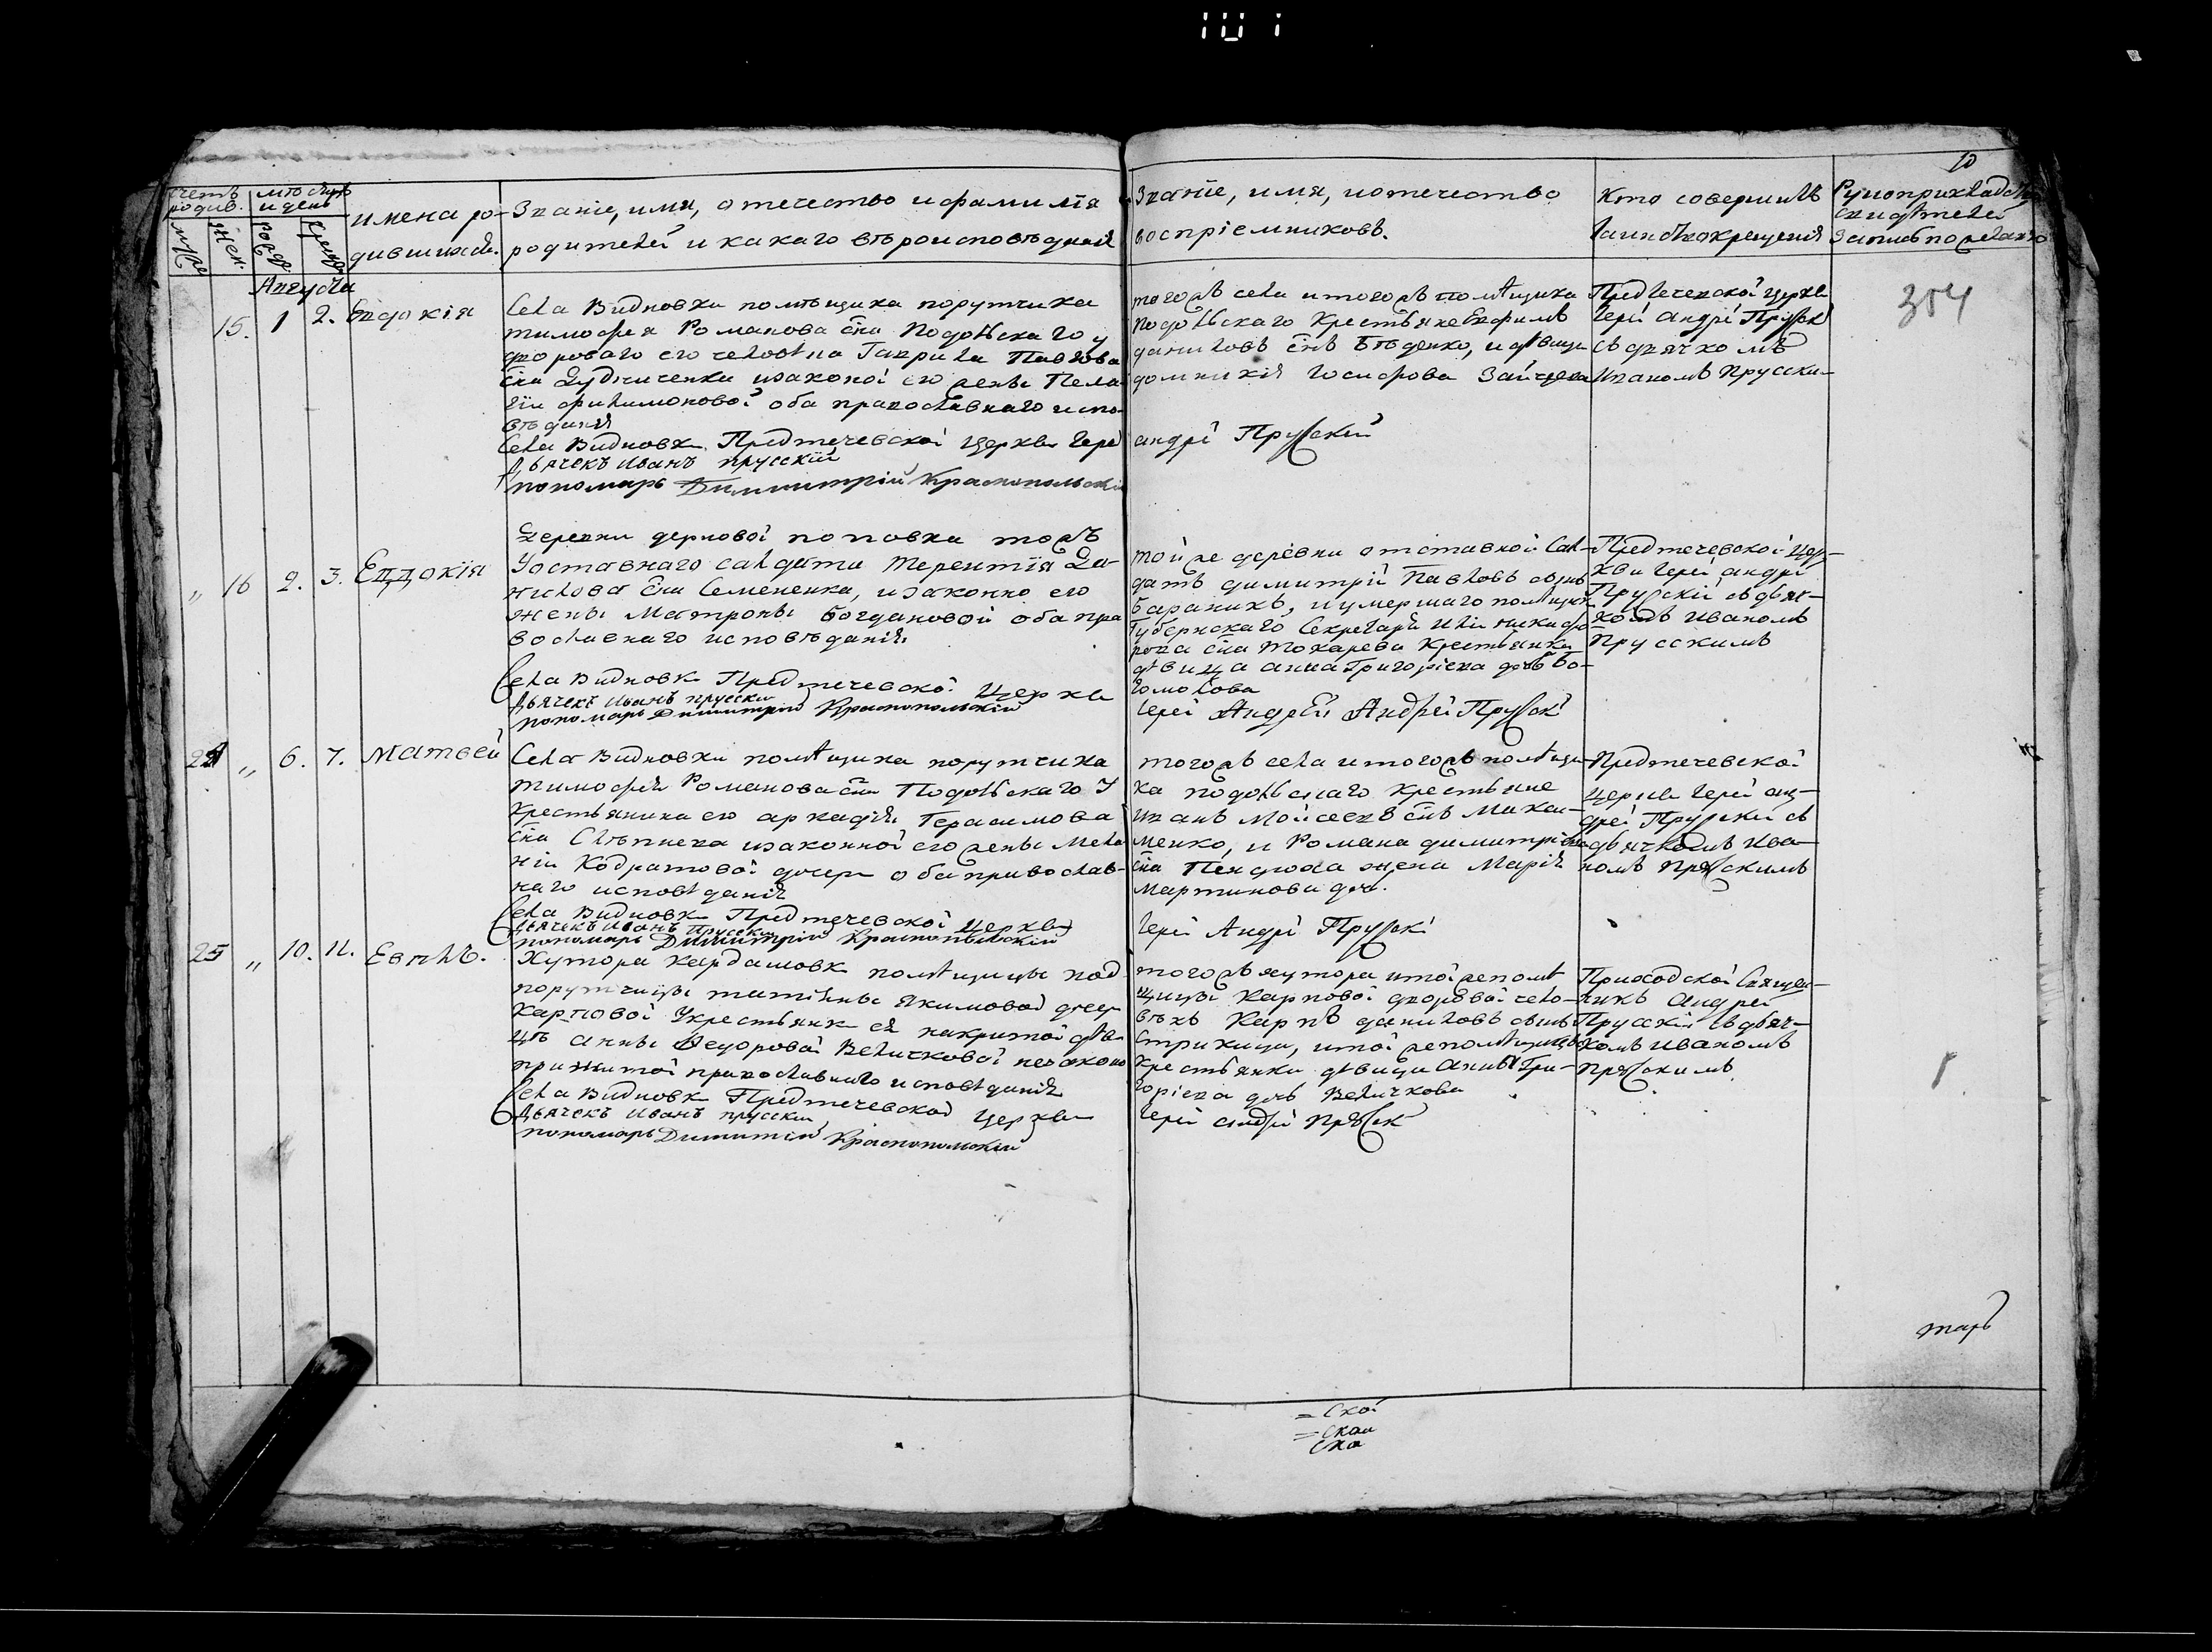 10
счетъ родив.
муже
жен.
мѣсяцъ и день
рожд.
крещен.
имена ро-
дившихся.
Званіе, имя, отечество и фамилія
родителей и какаго вѣроисповѣданія
Званіе, имя, и отечество
воспріемниковъ.
Кто совершилъ
таинство крещенія
Рукоприкладство
свидѣтелей
записи по желанію
Августа
15. 1 2. Евдокія
Села Видновки помѣщика порутчика
тимофея Романова сна Подольскаго у
двороваго его человека Гаврила Павлова
сна Дудниченка изаконой его жены Пела
гіи филимоновой оба православнаго испо-
вѣданія
Села Видновки Предтечевской Церкви Іерей
Дьячекъ Иванъ прусскій
пономарь Димитрій Краснопольскій
тогожъ села итогожъ помѣщика
Подольскаго Крестьяне Ефимъ
даниловъ снъ Бѣденко, и дѣвица
домникія Іосифова Зайцева
андрей Прусский
Предтечевской церкви
Іерей андрей Прусский
съ дьячкомъ
Иваномъ Прусски-
354
„ 16 2. 3. Евдокія
Деревни дерновой поповки тожъ
Уоставнаго салдата Терентія Да-
нилова сна Семененка, изаконно его
жены Матроны Богдановой оба пра
вославнаго исповѣданія.
Села Видновки Предтечевской Церкви
Дьячекъ Иванъ прусский
пономарь Димитрій Краснопольскій
тойже деревни отставной Сал-
датъ димитрій Павловъ сынъ
Бараникъ, и умершаго помѣщика
Губернскаго Секретаря Иліи никифо
рова сна Токарева Крестьянка
дѣвица анна Григоріева дочь Бо-
гомолова
Іерей Андрей Андрей Прусскій
Предтечевской Цер-
кви Іерей андрей
Прусскій съ дьяч-
комъ Иваномъ
Прусскимъ
24 „ 6. 7. Матвей
Села Видновки помѣщика порутчика
Тимофея Романова сна Подольскаго У
крестьянина его аркадія Герасимова
сна Слѣпнева изаконной его жены Мела
ніи Кодратовой дочери оба православ-
наго исповѣданія
Села Видновки Предтечевской Церкви
Дьячекъ Иванъ Прусский
пономарь Димитрій Краснопольскій
тогожъ села итогожъ помѣщи-
ка подольскаго крестьяне
Иванъ Мойсеевъ снъ Макси-
менко, и Романа димитріева
сна Пендюха жена Марія
Мартинова доч.
Іерей Андрей Прусскі
Предтечевской
церкви Іерей анд-
рей Прусский съ
дьячкомъ Ива-
номъ Прусскимъ
25 „ 10. 11. Евплъ.
Хутора Кардашовки помѣщицы под
порутчицы татіяны Якимовой дочери
Карповой Укрестьянки ея накритой дѣви
цѣ анны Федоровой Величковой незаконо
прижитой православнаго исповѣданія
Села Видновки Предтечевской Церкви
Дьячекъ Иванъ прусский
пономарь Димитрій Краснопольскій
тогожъ хутора итойже помѣ
щицы Карповой дворовой чело-
вѣкъ Карпъ даниловъ сынъ
Стрижица, итойже помѣщицы
крестьянки дѣвица Анна Гри-
горіева дочь Величкова
Іерей андрей Прусск
Приходской Священ-
никъ андрей
Прусскій съ дьяч-
комъ Иваномъ
Прусскимъ
тарь
= Ской
= Ской
Ска